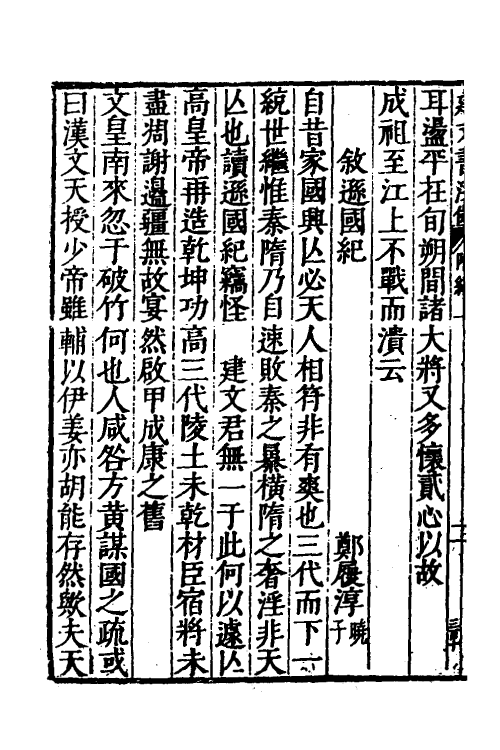 耳盪平在旬朔間諸大將又多懷貳心以故
成祖至江上不戰而潰云
敘遜國紀 鄭履淳曉子
自昔家國興亾必天人相符非有爽也三代而下一
統世繼惟秦隋乃自速敗秦之暴橫隋之奢淫非天
亾也讀遜國紀竊怪 建文君無一于此何以遽亾
高皇帝再造乾坤功高三代陵土未乾材臣宿將未
盡凋謝邉疆無故宴然啟甲成康之舊
文皇南來忽于破竹何也人咸咎方黄謀國之疏或
曰漢文天授少帝雖輔以伊姜亦胡能存然歟夫天